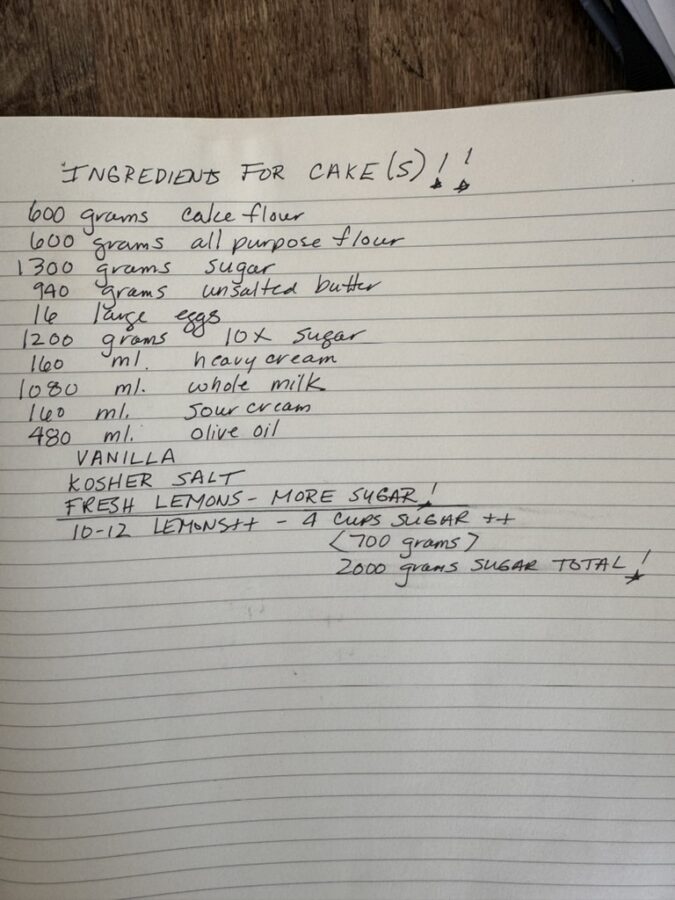 INGREDIENTS FOR CAKE(S)!!
600 grams cake flour
600 grams all purpose flour
1300 grams sugar
940 grams unsalted butter
16 large eggs
1200 grams 10X sugar
160 ml. heavy cream
1080 ml. whole milk
160 ml. sour cream
480 ml. olive oil
VANILLA
KOSHER SALT
FRESH LEMONS - MORE SUGAR!
10-12 LEMONS++ - 4 CUPS SUGAR ++
<700 grams>
2000 grams SUGAR TOTAL!